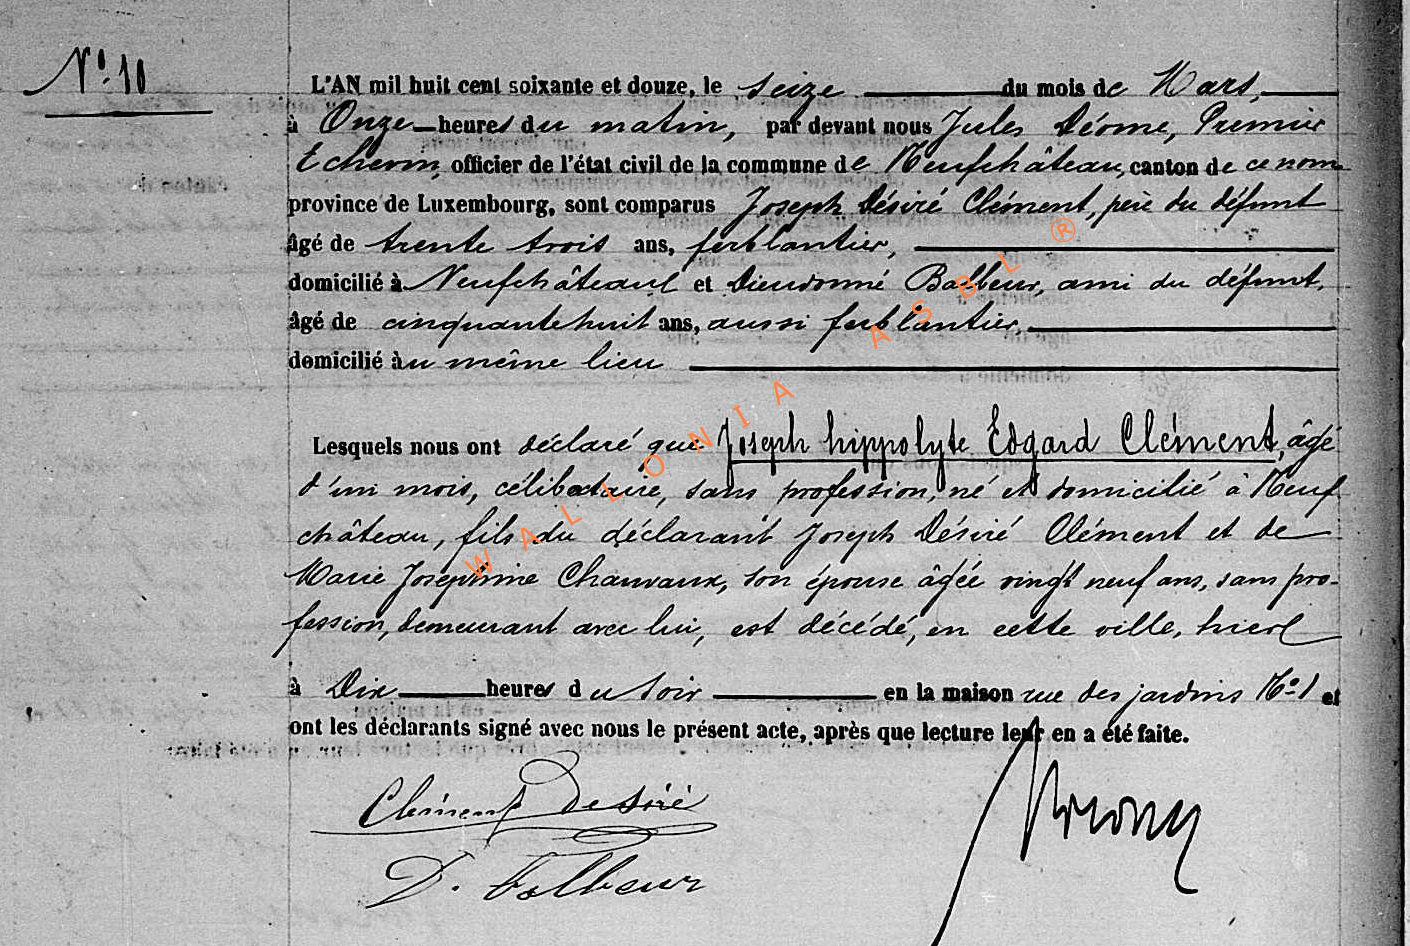 N° 10
L'AN mil huit cent soixante et douze, le seize du mois de Mars,
à Onze heures du matin, par devant nous Jules Déome, Premier
Echevin, officier de l'état civil de la commune de Neufchâteau, canton de ce nom
province de Luxembourg, sont comparus Joseph Désiré Clément, père du défunt
âgé de trente trois ans, ferblantier,
domicilié à Neufchâteau et Dieudonné Balbeur, ami du défunt,
âgé de cinquante huit ans, aussi ferblantier,
domicilié au même lieu
Lesquels nous ont déclaré que Joseph hippolyte Edgard Clément, âgé
d'un mois, célibataire, sans profession, né et domicilié à Neuf
château, fils du déclarant Joseph Désiré Clément et de
Marie Josephine Chauvaux, son épouse âgée vingt neuf ans, sans pro-
fession, demeurant avec lui, est décédé, en cette ville, hier
à Dix heures du soir en la maison rue des jardins N° 1 et
ont les déclarants signé avec nous le présent acte, après que lecture leur en a été faite.
Clément Désiré
D. Balbeur
WALLONIA ASBL ®